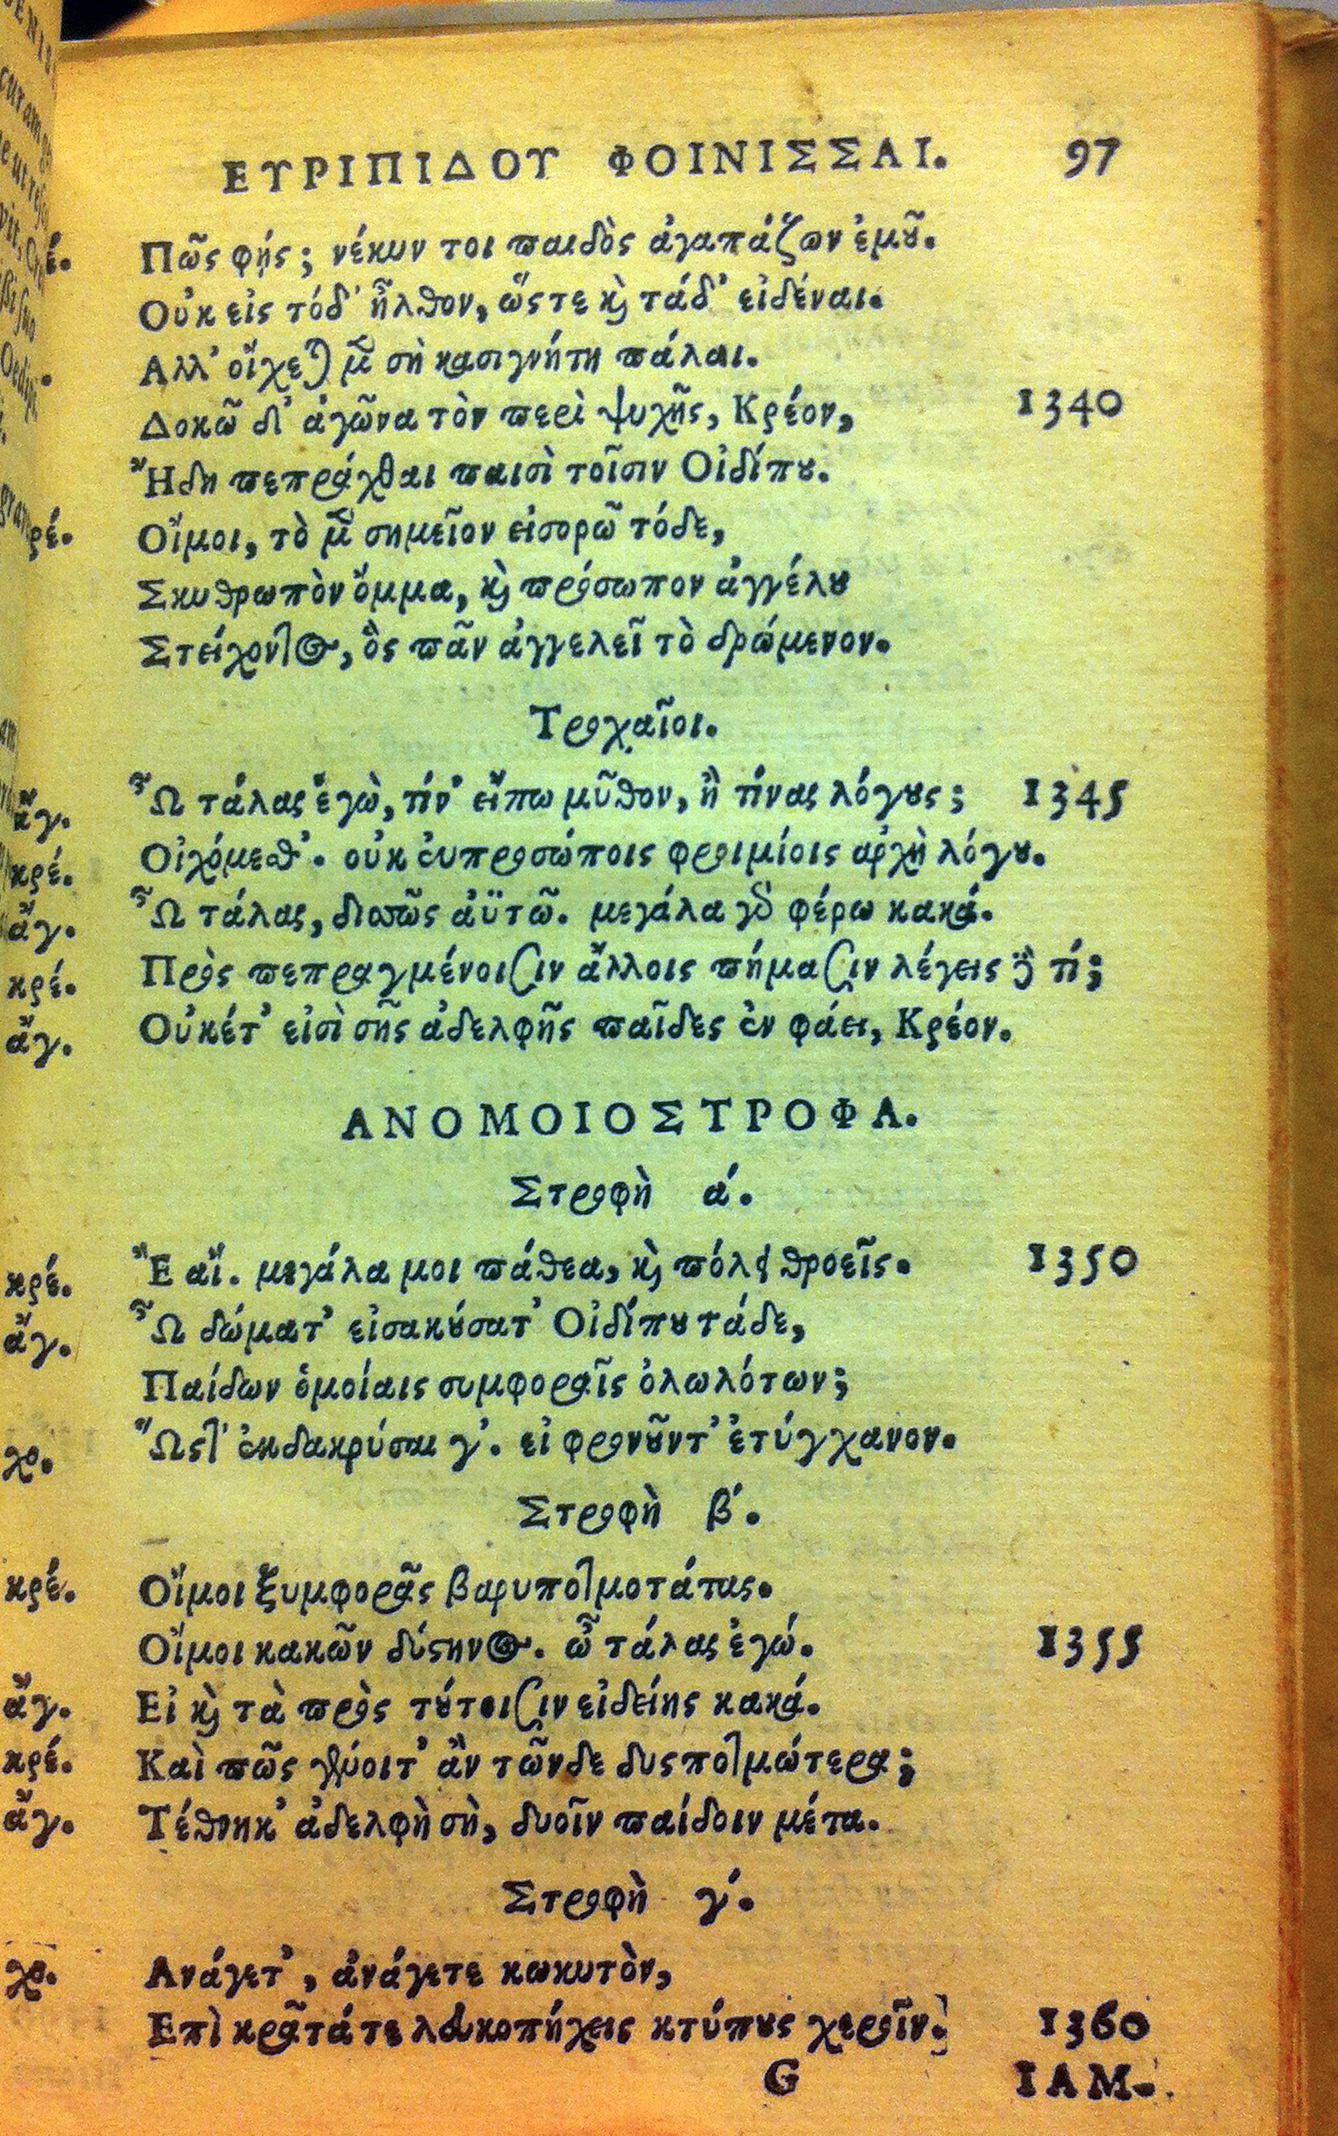 ΕΥΡΙΠΙΔΟΥ ΦΟΙΝΙΣΣΑΙ. 97
έ. Πῶς φῄς; νέκυν τοι παιδὸς ἀγαπάζων ἐμοῦ.
Οὐκ εἰς τόδ' ἦλθον, ὥςτε καὶ τάδ' εἰδέναι.
Αλλ' οἴχεται μὲν σὴ κασιγνήτη πάλαι.
Δοκῶ δ' ἀγῶνα τὸν περὶ ψυχῆς, Κρέον, 1340
Ἤδη πεπράχθαι παισὶ τοῖσιν Οἰδίπου.
ρέ. Οἴμοι, τὸ μὲν σημεῖον εἰσορῶ τόδε,
Σκυθρωπὸν ὄμμα, καὶ πρόσωπον ἀγγέλου
Στείχοντος, ὃς πᾶν ἀγγελεῖ τὸ δρώμενον.
Τροχαῖοι.
ἄγ. Ὦ τάλας ἐγὼ, τίν' εἴπω μῦθον, ἢ τίνας λόγους; 1345
κρέ. Οἰχόμεθ'. οὐκ εὐπροσώποις φροιμίοις ἀρχὴ λόγου.
ἄγ. Ὦ τάλας, δισσῶς ἀϋτῶ. μεγάλα γὰρ φέρω κακά.
κρέ. Πρὸς πεπραγμένοισιν ἄλλοις πήμασιν λέγεις δὲ τί;
ἄγ. Οὐκέτ' εἰσὶ σῆς ἀδελφῆς παῖδες ἐν φάει, Κρέον.
ΑΝΟΜΟΙΟΣΤΡΟΦΑ.
Στροφὴ ά.
κρέ. Ἒ αἴ. μεγάλα μοι πάθεα, καὶ πόλει θροεῖς. 1350
ἄγ. Ὦ δώματ' εἰσακούσατ' Οἰδίπου τάδε,
Παίδων ὁμοίαις συμφοραῖς ὀλωλότων;
χο. Ὥςτ' ἐκδακρύσαι γ'. εἰ φρονοῦντ' ἐτύγχανον.
Στροφὴ β'.
κρέ. Οἴμοι ξυμφορᾶς βαρυποτμοτάτας.
Οἴμοι κακῶν δύστηνος. ὦ τάλας ἐγώ. 1355
ἄγ. Εἰ καὶ τὰ πρὸς τούτοισιν εἰδείης κακά.
κρέ. Καὶ πῶς γένοιτ' ἂν τῶνδε δυςποτμώτερα;
ἄγ. Τέθνηκ' ἀδελφὴ σὴ, δυοῖν παίδοιν μέτα.
Στροφὴ γ'.
χο. Ανάγετ', ἀνάγετε κωκυτὸν,
Επὶ κρᾶτά τε λευκοπήχεις κτύπους χεροῖν. 1360
G ΙΑΜ-